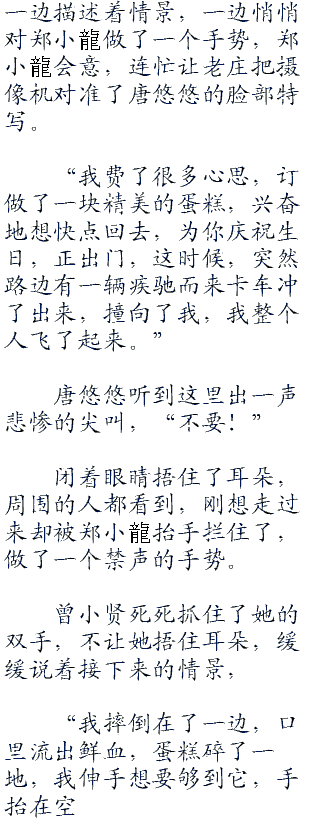 一边描述着情景，一边悄悄
对郑小龍做了一个手势，郑
小龍会意，连忙让老庄把摄
像机对准了唐悠悠的脸部特
写。
“我费了很多心思，订
做了一块精美的蛋糕，兴奋
地想快点回去，为你庆祝生
日，正出门，这时候，突然
路边有一辆疾驰而来卡车冲
了出来，撞向了我，我整个
人飞了起来。”
唐悠悠听到这里出一声
悲惨的尖叫，“不要！”
闭着眼睛捂住了耳朵，
周围的人都看到，刚想走过
来却被郑小龍抬手拦住了，
做了一个禁声的手势。
曾小贤死死抓住了她的
双手，不让她捂住耳朵，缓
缓说着接下来的情景，
“我摔倒在了一边，口
里流出鲜血，蛋糕碎了一
地，我伸手想要够到它，手
抬在空